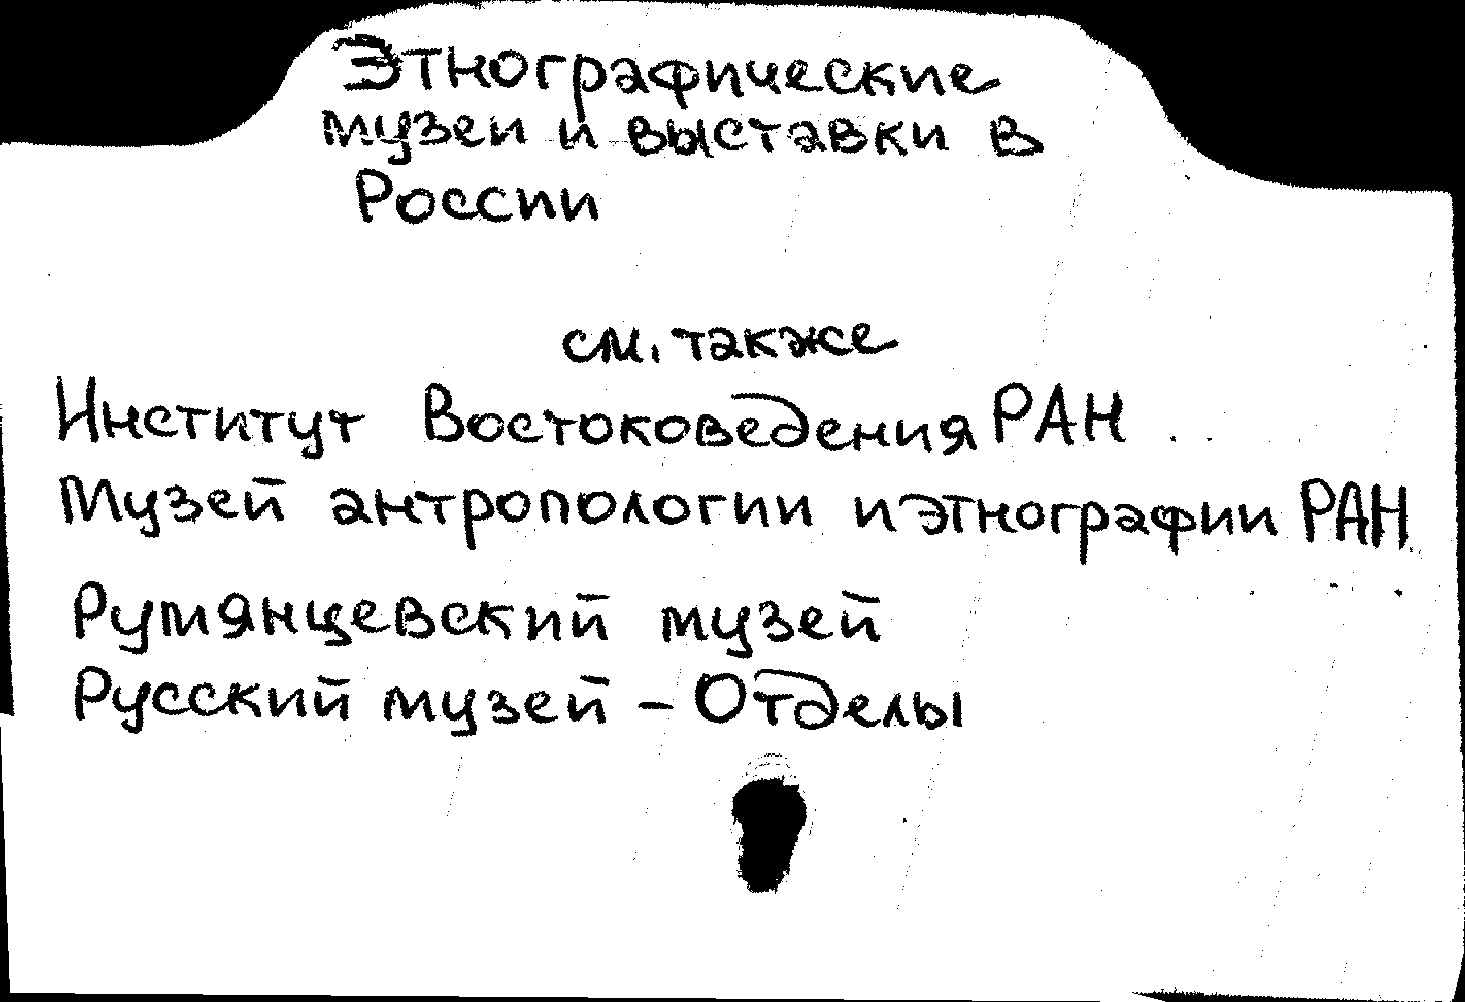 Этнографические
музеи и выставки в
России
см. также
Институт Востоковедения РАН
Музей антропологии и этнографии РАН
Румянцевский музей
Русский музей - Отделы